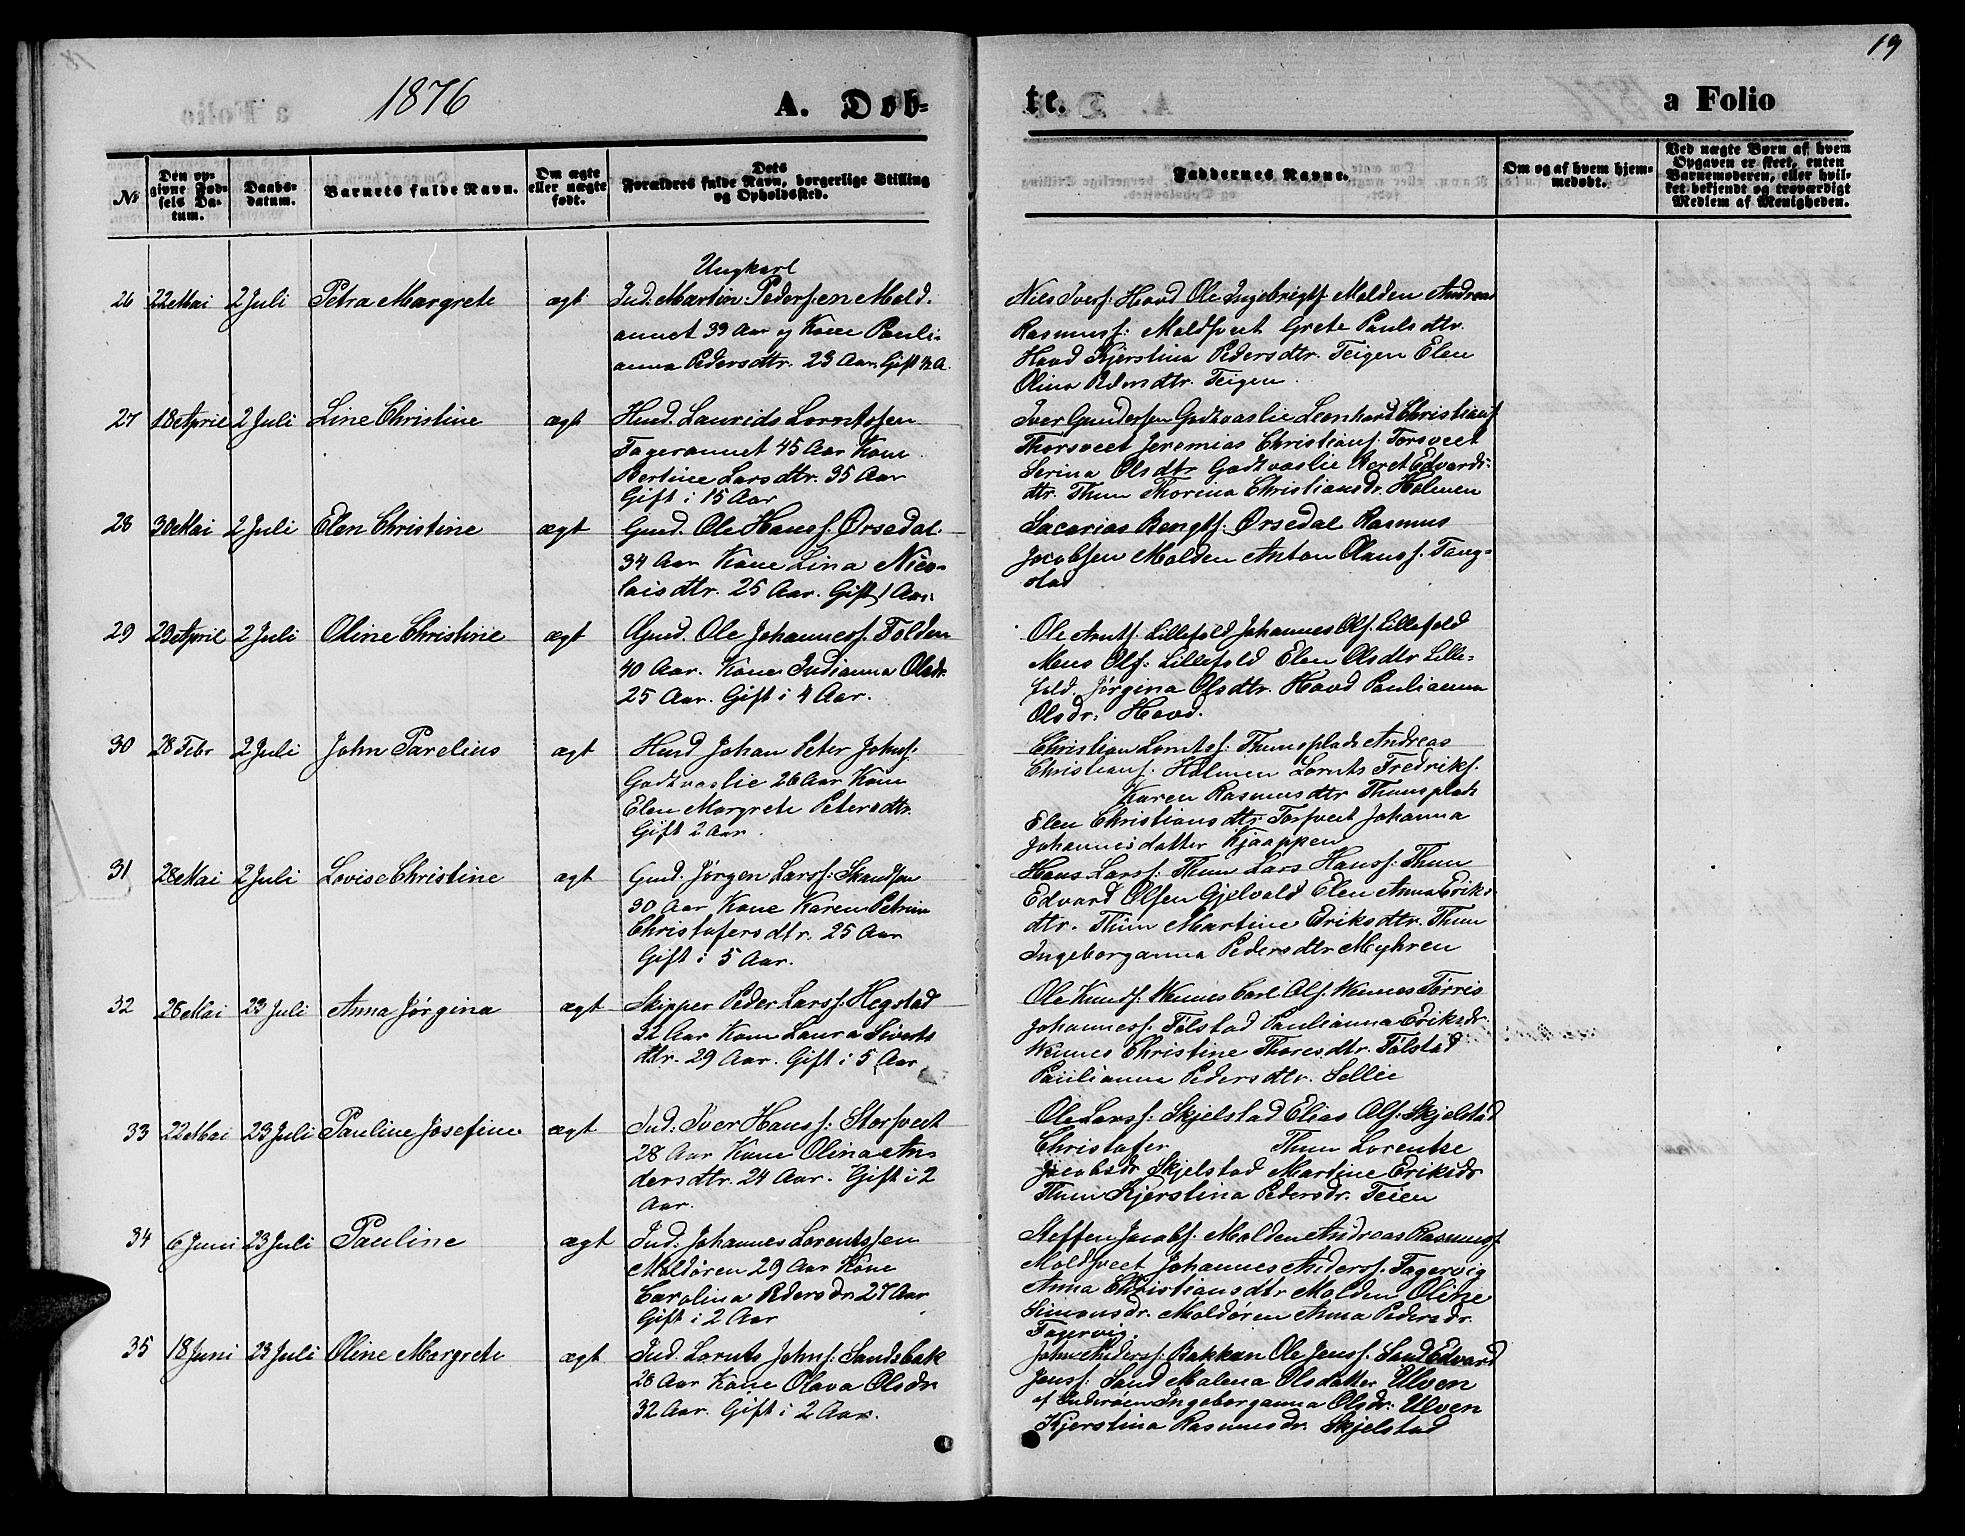 1876 A. Døb-
te. a Folio
19
№
Den opgivne Fødsels Datum.
Daabsdatum.
Barnets fulde Navn.
Om ægte eller uægte født.
Dets Forældres fulde Navn, borgerlige Stilling og Opholdssted.
Faddernes Navne.
Om og af hvem hjemmedøbt.
Ved uægte Børn af hvem Opgaven er skeet, enten Barnemoderen, eller hvilket bekjendt og troværdigt Medlem af Menigheden.
Ungkarl
26 22 Mai 2 Juli Petra Margrete ægt Ind. Martin Peders:en Mold-
annet 39 Aar og Kone Pauli-
anna Pedersdtr. 23 Aar. Gift ½ A.
Nils Ivers: Hovd Ole Ingebrigts. Molden Andreas
Rasmuss: Moldsveet Grete Paulsdtr.
Hovd Kjerstina Pedersdtr. Teigen Elen
Olina Pedersdtr. Teigen.
27 18 April 2 Juli Line Christine ægt Husd. Laurids Lorntssen
Fagerannet 45 Aar Kone
Bertine Larsdtr. 35 Aar
Gift i 15 Aar
Iver Gundersen Godtvaslie Leonhard Christians
Thorsveet Jeremias Christians. Torsveet
Serina Olsdtr Godtvaslie Beret Edvards-
dtr. Thun Thorina Christiansdr. Holmen
28 30 Mai 2 Juli Elen Christine ægt Gmd. Ole Hanss. Ørsedal
34 Aar Kone Lina Nico-
laisdtr. 25 Aar. Gift 1 Aar.
Sacarias Bengts. Ørsedal Rasmus
Jacobsen Molden Anton Olauss. Tang-
stad
29 29 April 2 Juli Oline Christine ægt Gmd. Ole Johanness. Folden
40 Aar. Kone Indianna Olsdr.
25 Aar. Gift i 4 Aar.
Ole Arnts. Lillefold Johannes Ols. Lillefold
Mens Ols: Lillefold Elen Olsdtr Lille-
fold. Jørgina Olsdtr. Hovd Paulianna
Olsdr. Hovd.
30 28 Febr 2 Juli John Parelius ægt Husd Johan Peter Johns.
Godtvaslie 26 Aar Kone
Elen Margrete Petersdtr.
Gift 2 Aar.
Christian Lornts: Thunsplads Andreas
Christians. Holmen Lornts Fredriks.
Karen Rasmusdtr Thunsplads
Elen Christiansdtr. Torsveet Johanna
Johannesdatter Kjoappen
31 28 Mai 2 Juli Lovise Christine ægt Gmd. Jørgen Larss:
30 Aar Kone Karen Petrine
Christofersdtr. 25 Aar
Gift i 5 Aar.
Hans Larss: Thun Lars Hanss: Thun
Edvard Olsen Gjelvold Elen Anna Eriks-
dtr. Thun Martine Eriksdtr. Thun
Ingeborganna Pedersdtr Myhren
32 28 Mai 23 Juli Anna Jørgina ægt Skipper Peder Larss: Hegstad
32 Aar Kone Laura Siverts
dtr. 29 Aar. Gift i 5 Aar
Ole Knuds. Wennes Carl Ols. Wennes Torris
Johanness. Følstad Paulianna Eriksdr.
Wennes Christine Thoresdtr. Følstad
Paulianna Pedersdtr. Sellie
33 22 Mai 23 Juli Pauline Josefine ægt Ind. Iver Hanss: Storsveet
28 Aar Kone Olina An-
dersdtr. 24 Aar. Gift i 2
Aar.
Ole Larss: Skjelstad Elias Ols. Skjelstad
Christofer Thun Lorentse
Jacobsdr Skjelstad Martine Eriksdr
Thun Kjerstina Pedersdr. Teien
34 6 Juni 23 Juli Pauline ægt Ind. Johannes Lorentssen
Moldøren 29 Aar Kone
Carolina Pedersdr 27 Aar
Gift i 2 Aar
Steffen Jacobs. Molden Andreas Rasmuss.
Moldsveet Johannes Anderss. Fagervig
Anna Christiansdtr Molden Oline
Simonsdr. Moldøren Anna Pedersdr.
Fagervig.
35 18 Juni 23 Juli Oline Margrete ægt Ind. Lornts Johns: Sandsbak
28 Aar Kone Olava Olsdr
32 Aar. Gift i 2 Aar.
John Anderss: Bakken Ole Jenss. Sand Edvard
Jenss. Sand Malena Olsdatter Ulven
af Inderøen Ingeborganna Olsdr. Ulven
Kjerstina Rasmusdr. Skjelstad